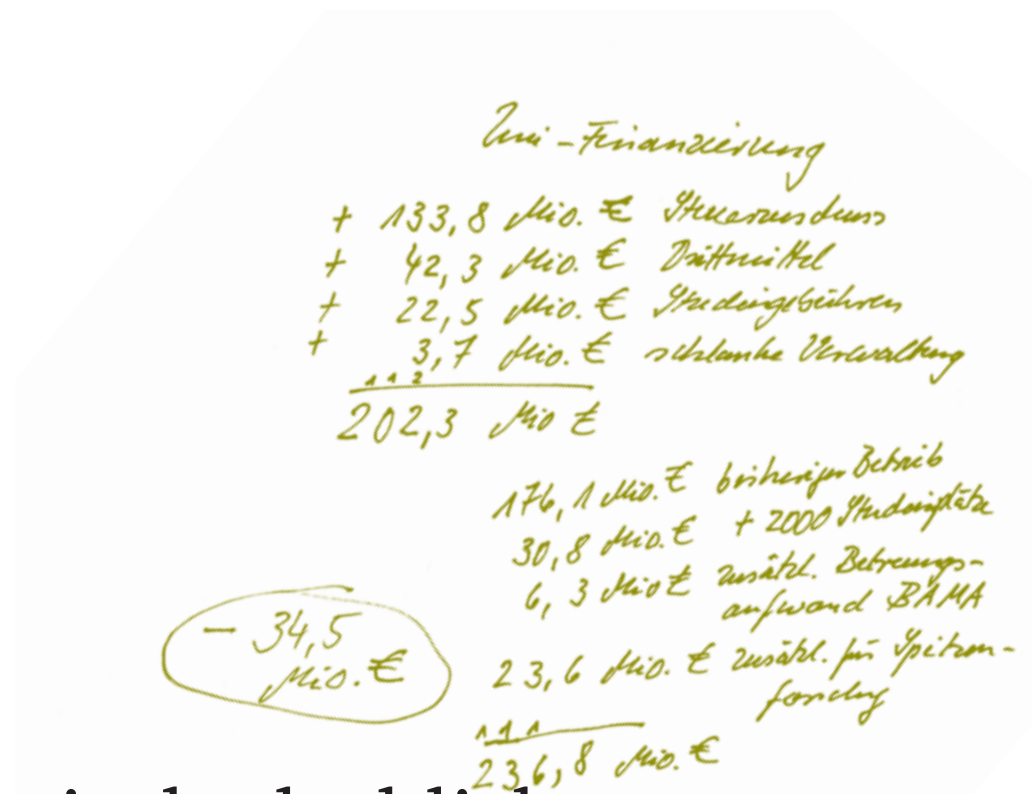 Uni-Finanzierung
+ 133,8 Mio. € Steuerzuschuss
+ 42,3 Mio. € Drittmittel
+ 22,5 Mio. € Studiengebühren
+ 3,7 Mio. € schlanke Verwaltung
1 1 2
202,3 Mio €
176,1 Mio. € bisheriger Betrieb
30,8 Mio. € + 2000 Studienplätze
6,3 Mio € zusätzl. Betreuungs-
aufwand BAMA
23,6 Mio. € zusätzl. für Spitzen-
forschung
1 1 1
236,8 Mio. €
- 34,5
Mio. €